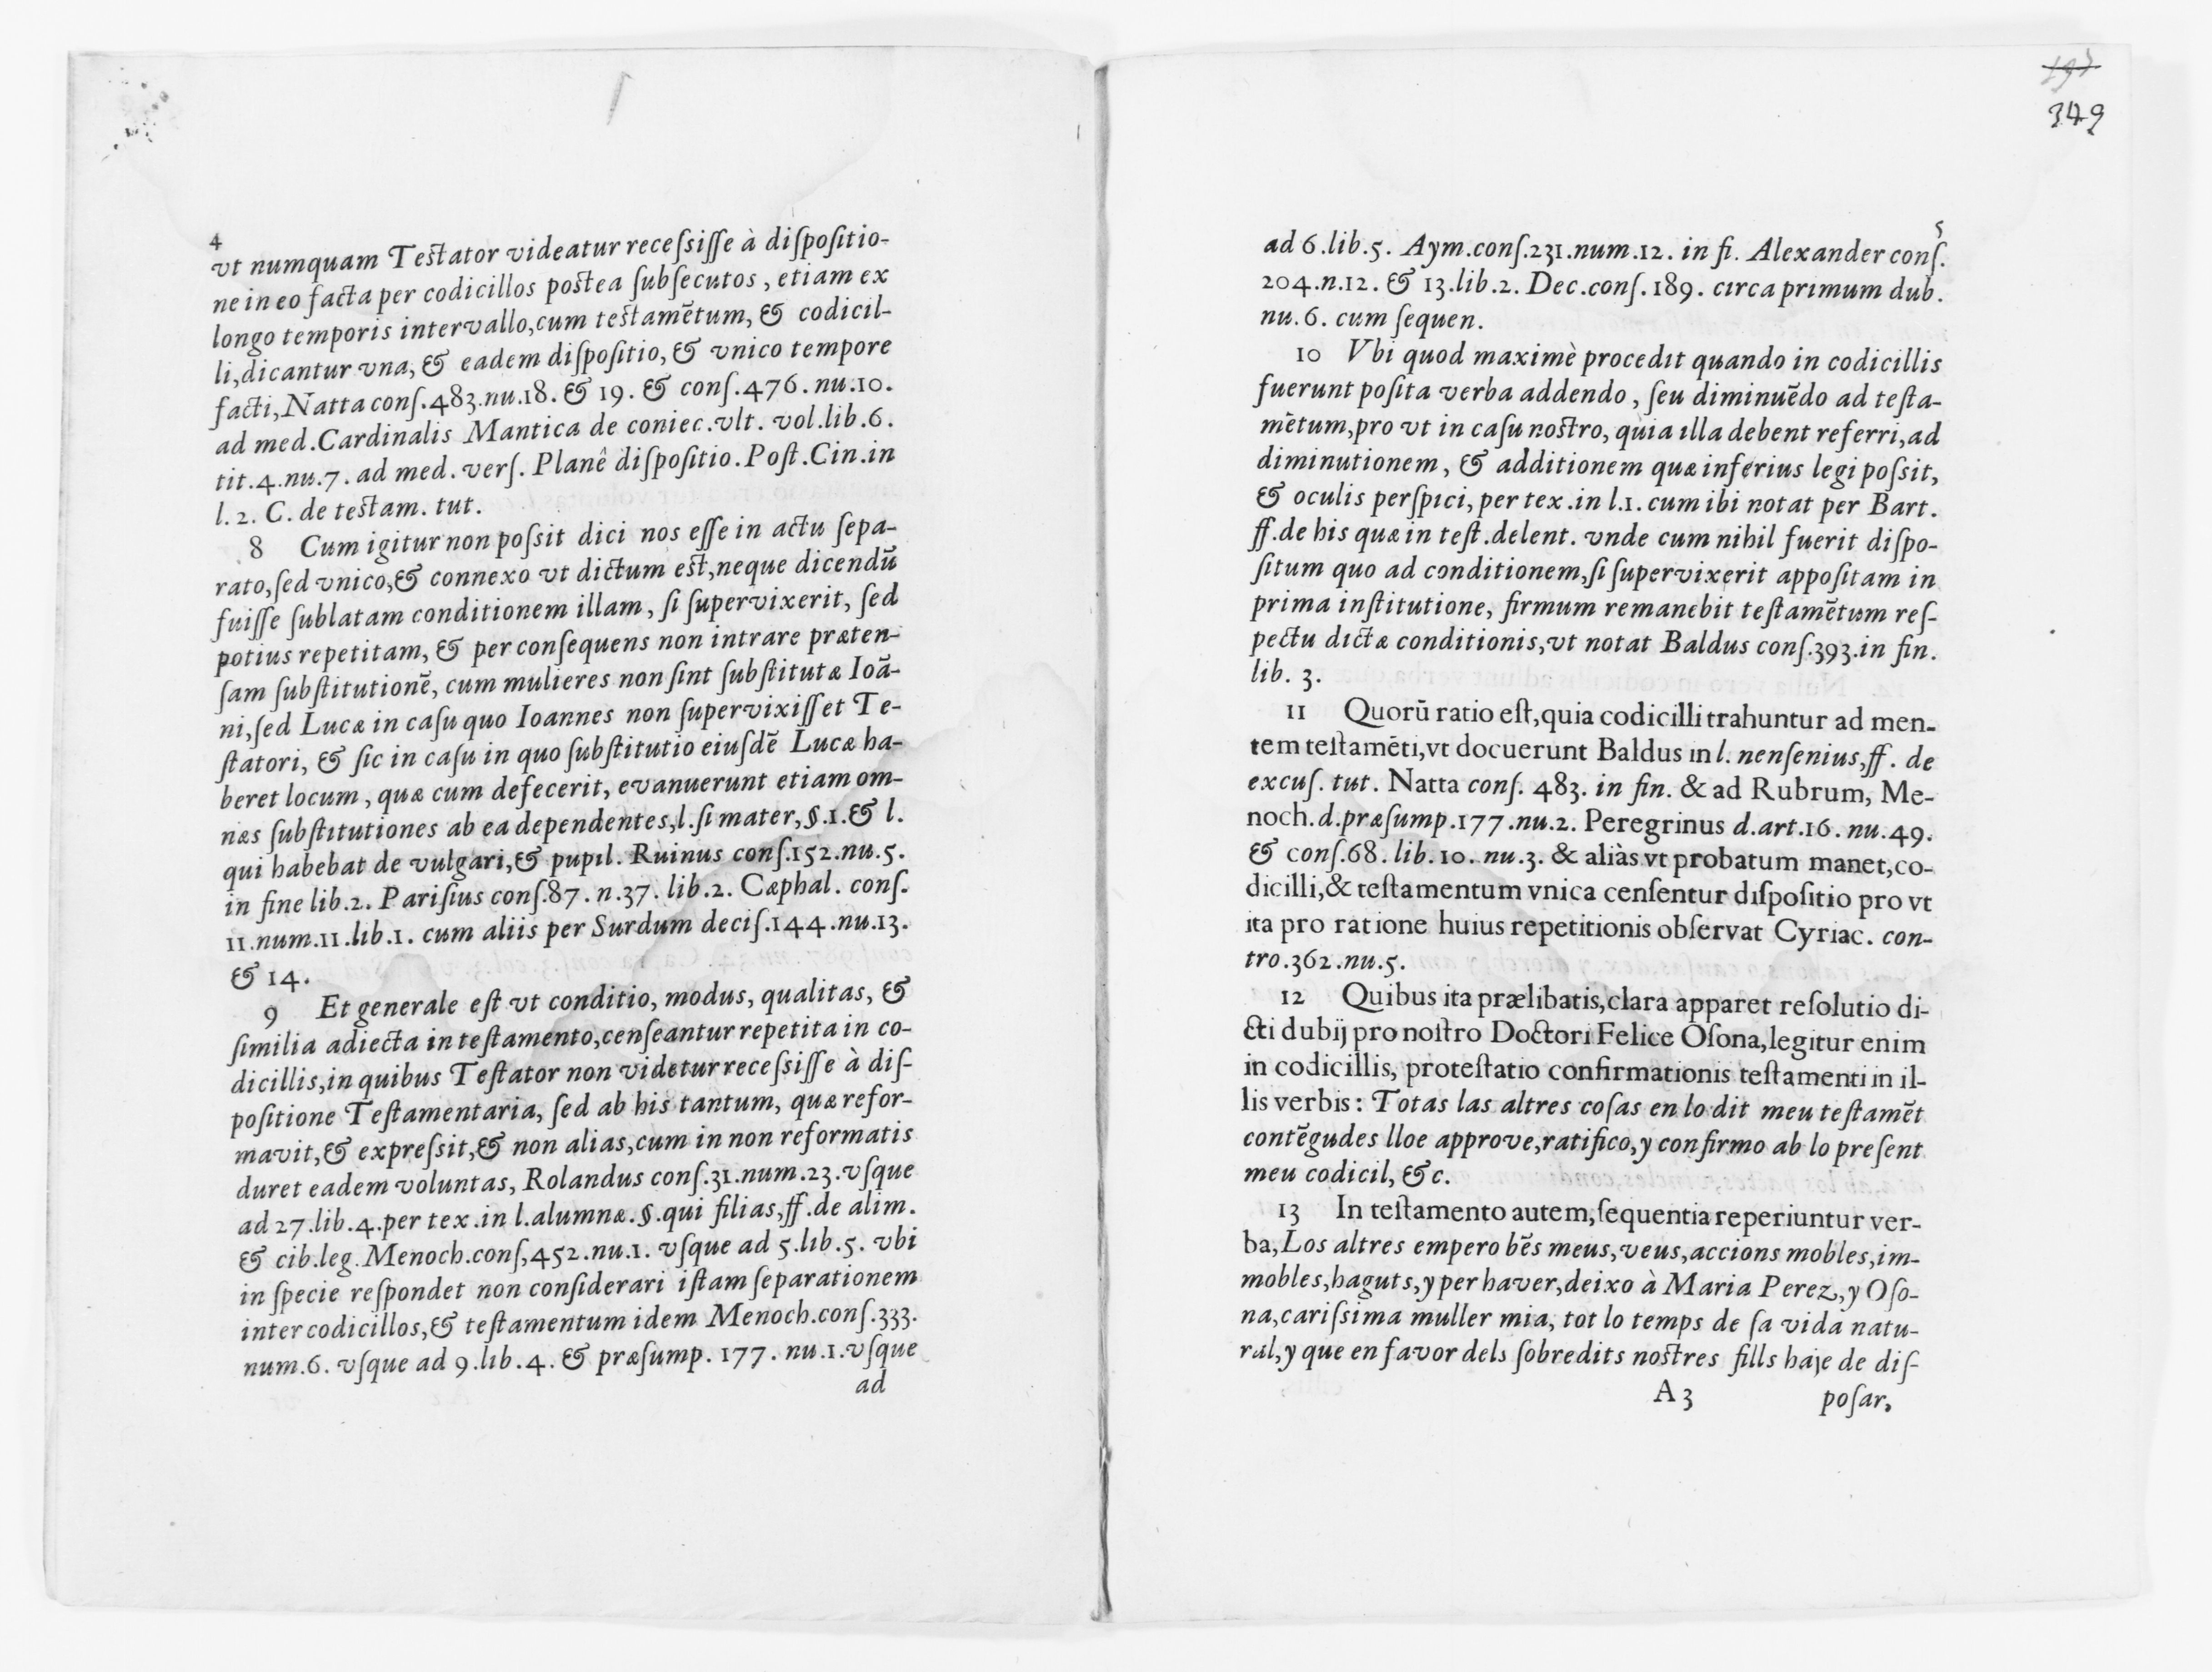 4
vt numquam Teſtator videatur receſsiſſe à diſpoſitio-
ne in eo facta per codicillos poſtea ſubſecutos, etiam ex
longo temporis intervallo, cum teſtamẽtum, & codicil-
li, dicantur vna, & eadem diſpoſitio, & vnico tempore
facti, Natta conſ. 483. nu. 18. & 19. & conſ. 476. nu. 10.
ad med. Cardinalis Mantica de coniec. vlt. vol. lib. 6.
tit. 4. nu. 7. ad med. verſ. Planê diſpoſitio. Poſt. Cin. in
l. 2. C. de teſtam. tut.
8 Cum igitur non poſsit dici nos eſſe in actu ſepa-
rato, ſed vnico, & connexo vt dictum eſt, neque dicendũ
fuiſſe ſublatam conditionem illam, ſi ſupervixerit, ſed
potius repetitam, & per conſequens non intrare præten-
ſam ſubſtitutionẽ, cum mulieres non ſint ſubſtitutæ Ioã-
ni, ſed Lucæ in caſu quo Ioannes non ſupervixiſſet Te-
ſtatori, & ſic in caſu in quo ſubſtitutio eiuſdẽ Lucæ ha-
beret locum, quæ cum defecerit, evanuerunt etiam om-
næs ſubſtitutiones ab ea dependentes, l. ſi mater, §. 1. & l.
qui habebat de vulgari, & pupil. Ruinus conſ. 152. nu. 5.
in fine lib. 2. Pariſius conſ. 87. n. 37. lib. 2. Cæphal. conſ.
11. num. 11. lib. 1. cum aliis per Surdum deciſ. 144. nu. 13.
& 14.
9 Et generale eſt vt conditio, modus, qualitas, &
ſimilia adiecta in teſtamento, cenſeantur repetita in co-
dicillis, in quibus Teſtator non videtur receſsiſſe à diſ-
poſitione Teſtamentaria, ſed ab his tantum, quæ refor-
mavit, & expreſsit, & non alias, cum in non reformatis
duret eadem voluntas, Rolandus conſ. 31. num. 23. vſque
ad 27. lib. 4. per tex. in l. alumnæ. §. qui filias, ff. de alim.
& cib. leg. Menoch. conſ, 452. nu. 1. vſque ad 5. lib. 5. vbi
in ſpecie reſpondet non conſiderari iſtam ſeparationem
inter codicillos, & teſtamentum idem Menoch. conſ. 333.
num. 6. vſque ad 9. lib. 4. & præſump. 177. nu. 1. vſque
ad
349
5
ad 6. lib. 5. Aym. conſ. 231. num. 12. in fi. Alexander conſ.
204. n. 12. & 13. lib. 2. Dec. conſ. 189. circa primum dub.
nu. 6. cum ſequen.
10 Vbi quod maximè procedit quando in codicillis
fuerunt poſita verba addendo, ſeu diminuẽdo ad teſta-
mẽtum, pro vt in caſu noſtro, quia illa debent referri, ad
diminutionem, & additionem quæ inferius legi poſsit,
& oculis perſpici, per tex. in l. 1. cum ibi notat per Bart.
ff. de his quæ in teſt. delent. vnde cum nihil fuerit diſpo-
ſitum quo ad conditionem, ſi ſupervixerit appoſitam in
prima inſtitutione, firmum remanebit teſtamẽtum reſ-
pectu dictæ conditionis, vt notat Baldus conſ. 393. in fin.
lib. 3.
11 Quorũ ratio eſt, quia codicilli trahuntur ad men-
tem teſtamẽti, vt docuerunt Baldus in l. nenſenius, ff. de
excuſ. tut. Natta conſ. 483. in fin. & ad Rubrum, Me-
noch. d. præſump. 177. nu. 2. Peregrinus d. art. 16. nu. 49.
& conſ. 68. lib. 10. nu. 3. & aliàs vt probatum manet, co-
dicilli, & teſtamentum vnica cenſentur diſpoſitio pro vt
ita pro ratione huius repetitionis obſervat Cyriac. con-
tro. 362. nu. 5.
12 Quibus ita prælibatis, clara apparet reſolutio di-
cti dubij pro noſtro Doctori Felice Oſona, legitur enim
in codicillis, proteſtatio confirmationis teſtamenti in il-
lis verbis: Totas las altres coſas en lo dit meu teſtamẽt
contẽgudes lloe approve, ratifico, y confirmo ab lo preſent
meu codicil, &c.
13 In teſtamento autem, ſequentia reperiuntur ver-
ba, Los altres empero bẽs meus, veus, accions mobles, im-
mobles, haguts, y per haver, deixo à Maria Perez, y Oſo-
na, cariſsima muller mia, tot lo temps de ſa vida natu-
ral, y que en favor dels ſobredits noſtres fills haje de diſ-
A 3 poſar,